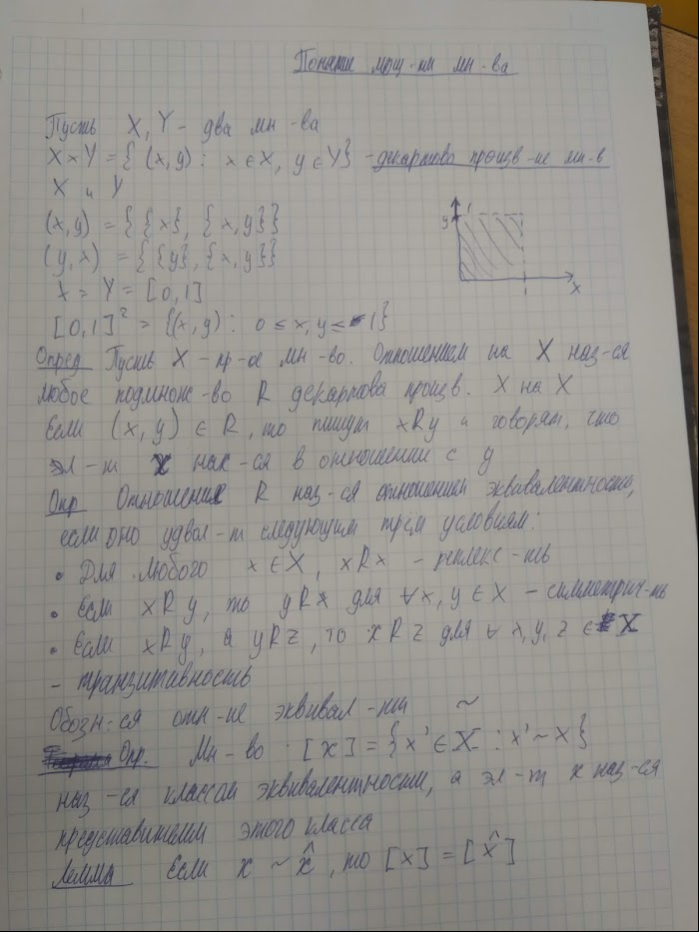 Понятие мощ-ти мн-ва
Пусть X, Y - два мн-ва
X × Y = { (x, y) : x ∈ X, y ∈ Y } - декартово произв-ие мн-в
X и Y
(x, y) = { {x}, {x, y} }
(y, x) = { {y}, {x, y} }
y 1
1 x
X = Y = [0,1]
[0,1]² = {(x, y) : 0 ≤ x, y ≤ 1}
Опред Пусть X - пр-ое мн-во. Отношением на X наз-ся
любое подмнож-во R декартова произв. X на X
Если (x, y) ∈ R, то пишут xRy и говорят, что
эл-т x нах-ся в отношении с y
Опр Отношение R наз-ся отношением эквивалентности,
если оно удовл-т следующим трем условиям:
• Для любого x ∈ X, xRx - рефлекс-ть
• Если xRy, то yRx для ∀x, y ∈ X - симметрич-ть
• Если xRy, а yRz, то xRz для ∀ x, y, z ∈ X
- транзитивность
Обозн-ся отн-ие эквивал-ти ~
Опр. Мн-во [x] = {x' ∈ X : x' ~ x}
наз-ся классом эквивалентности, а эл-т x наз-ся
представителем этого класса
Лемма Если x ~ x̂, то [x] = [x̂]